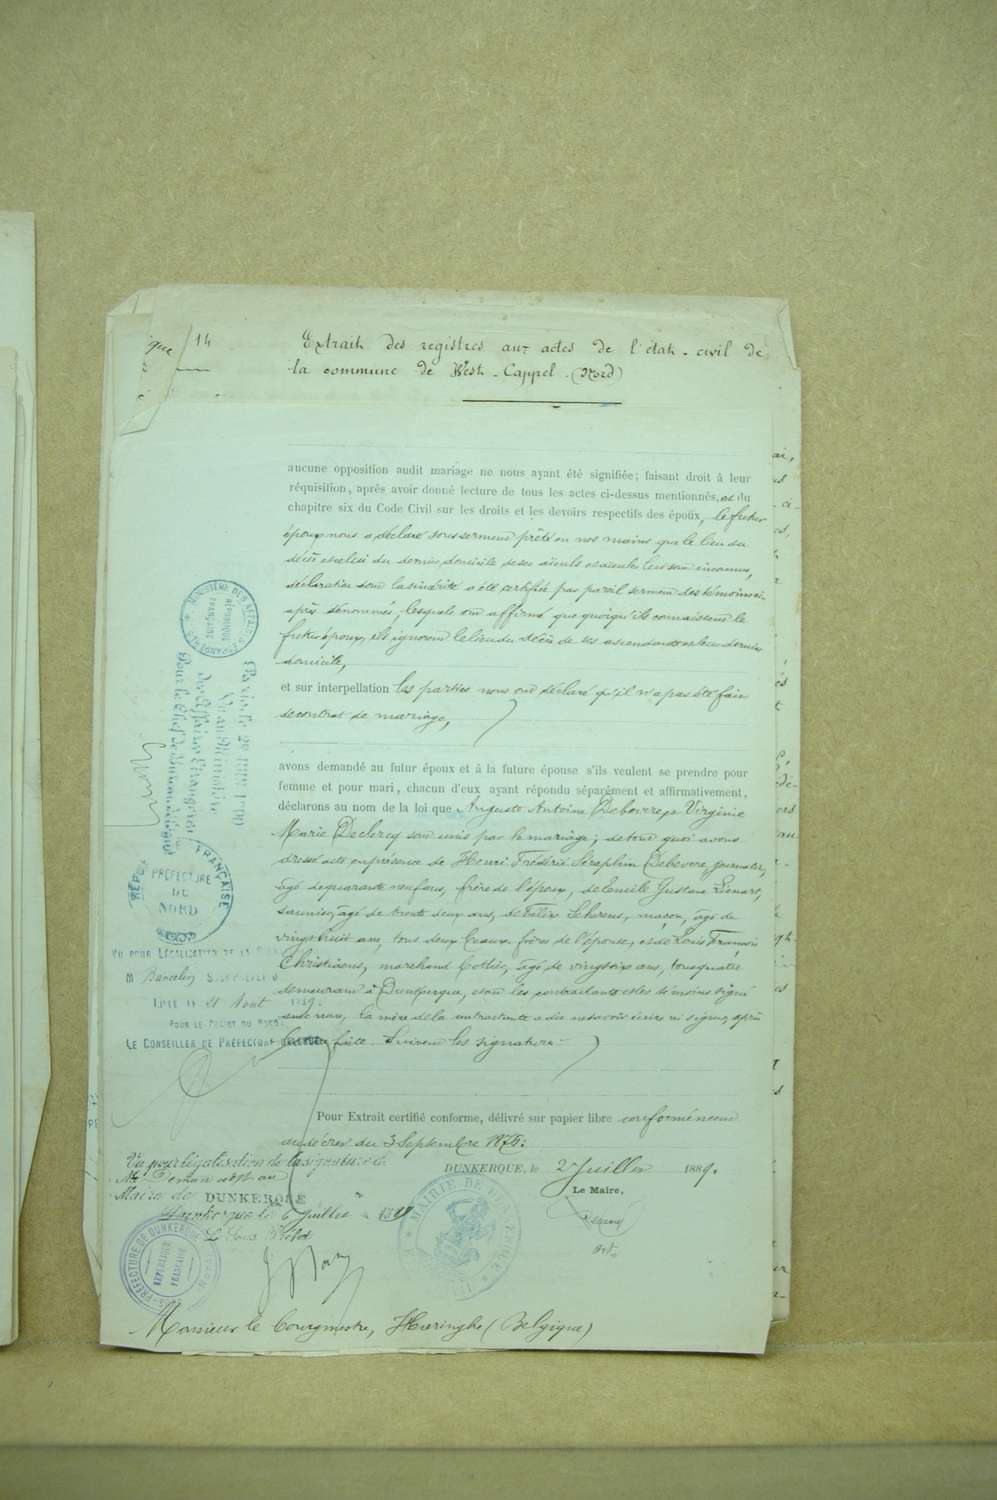 que / 14
Extrait des registres aux actes de l'état-civil de
la commune de West-Cappel (Nord)
aucune opposition audit mariage ne nous ayant été signifiée; faisant droit à leur
réquisition, après avoir donné lecture de tous les actes ci-dessus mentionnés, et du
chapitre six du Code Civil sur les droits et les devoirs respectifs des époux, le futur
époux nous a déclaré sous serment prêté en nos mains que le lieu du
décès et celui du dernier domicile de ses aïeuls et aïeules lui sont inconnus,
déclaration dont la sincérité a été certifiée par pareil serment des témoins ci-
après dénommés, lesquels ont affirmé que quoiqu'ils connaissent le
futur époux, ils ignorent le lieu du décès de ses ascendants et leur dernier
domicile,
et sur interpellation les parties nous ont déclaré qu'il n'a pas été fait
de contrat de mariage,
avons demandé au futur époux et à la future épouse s'ils veulent se prendre pour
femme et pour mari, chacun d'eux ayant répondu séparément et affirmativement,
déclarons au nom de la loi que Auguste Antoine Debeverre Virginie
Marie Declercq sont unis par le mariage; de tout quoi avons
dressé acte en présence de Henri Frédéric Séraphin Debevere, journalier,
âgé de quarante neuf ans, frère de l'époux, de Emile Gustave Lienart,
saunier, âgé de trente deux ans, de Felix Scherens, maçon, âgé de
vingt huit ans, tous deux beaux frères de l'épouse, et de Louis François
Christiaens, marchand, âgé de vingt six ans, tous quatre
demeurant à Dunkerque, et ont les contractants et les témoins signé
avec nous, la mère de la contractante a dit ne savoir écrire ni signer, après
lecture faite. Suivent les signatures
Pour Extrait certifié conforme, délivré sur papier libre conformément
au décret du 3 Septembre
DUNKERQUE, le 2 Juillet 1889.
Le Maire,
MINISTÈRE DES AFFAIRES ÉTRANGÈRES
RÉPUBLIQUE FRANÇAISE
Pour le Ministre
des Affaires Étrangères
RÉPUBLIQUE FRANÇAISE
PRÉFECTURE
DU
NORD
VU POUR LÉGALISATION DE LA
M
LILLE LE 21 Août
POUR LE PRÉFET DU NORD
LE CONSEILLER DE PRÉFECTURE DÉLÉGUÉ
Vu pour légalisation de la signature de
M
Maire de DUNKERQUE
Dunkerque le 6 Juillet 1889
Le Sous Préfet
SOUS-PRÉFECTURE DE DUNKERQUE
RÉPUBLIQUE
FRANÇAISE
MAIRIE DE DUNKERQUE
Monsieur le bourgmestre, Haringhe (Belgique)